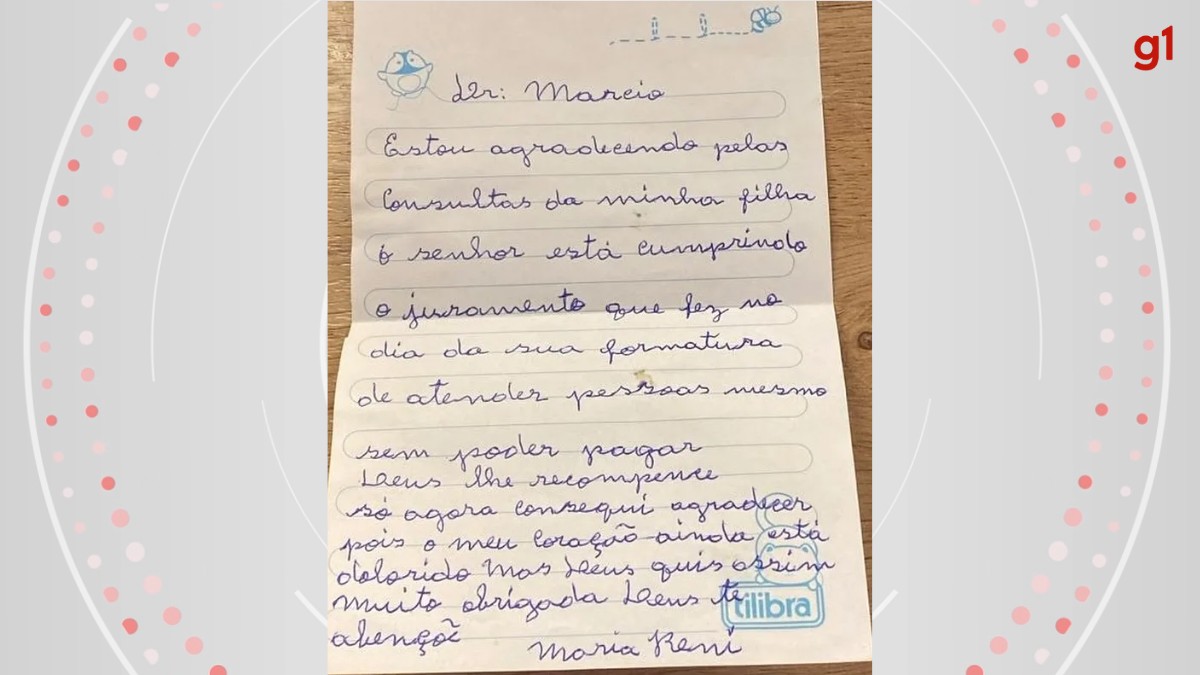 g1
Dr: Marcio
Estou agradecendo pelas
Consultas da minha filha
o senhor está cumprindo
o juramento que fez no
dia da sua formatura
de atender pessoas mesmo
sem poder pagar
Deus lhe recompence
só agora consegui agradecer
pois o meu coração ainda está
dolorido Mas Deus quis assim
Muito obrigada Deus te
abençõe
tilibra
Maria Reni